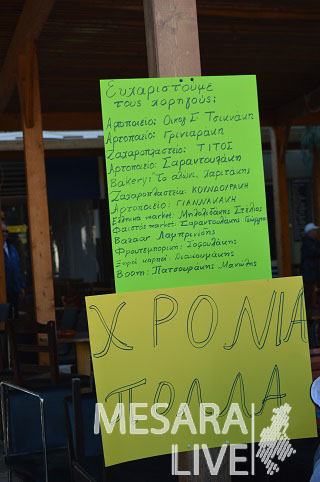 Ευχαριστούμε
τους χορηγούς:
Αρτοποιείο: Οικογ Γ Τσικνάκη
Αρτοποιείο: Γρινιαράκη
Ζαχαροπλαστείο: ΤΙΤΟΣ
Αρτοποιείο: Σαραντουλάκη
Bakery: Το αλώνι, Χαριτάκης
Ζαχαροπλαστεία: ΚΟΥΝΔΟΥΡΑΚΗ
Αρτοποιείο: ΓΙΑΝΝΑΚΑΚΗ
market: Μιλολιδάκης Στέλιος
Φαιστός market: Σαραντουλάκη Γιώργη
Bazaar Λαμπρινίδης
Φρουτεμπορική: Σοφουλάκης
Ξηροί καρποί: Διακουμάκης
Βοοm: Πατσουράκης Μανώλης
ΧΡΟΝΙΑ
ΠΟΛΛΑ
MESARA
LIVE